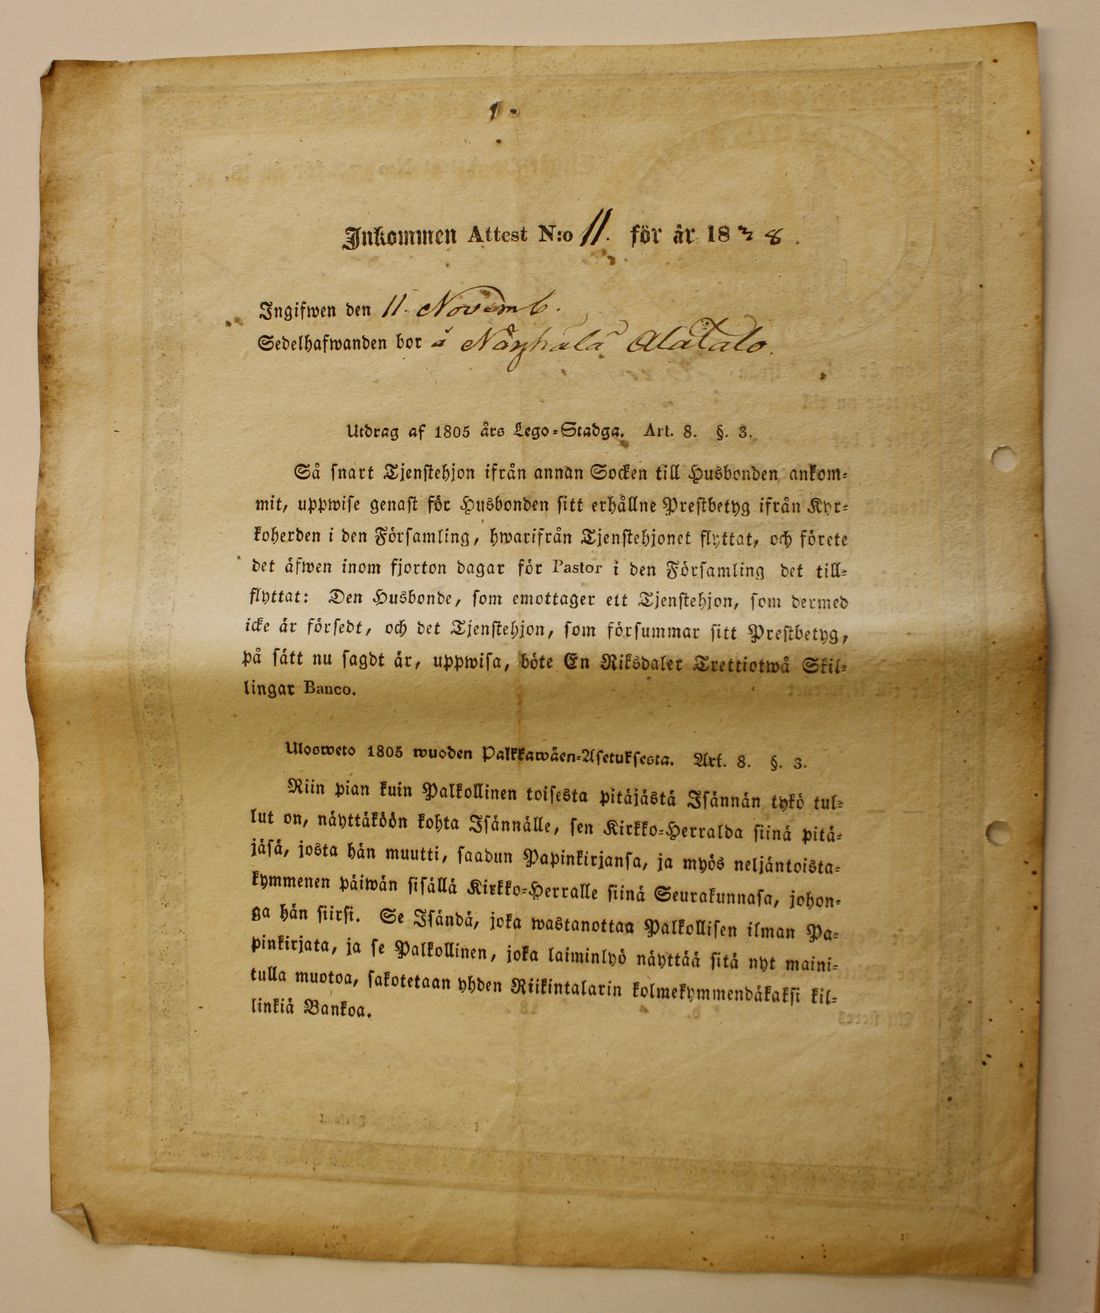 1.
Inkommen Attest N:o 11. för år 1838.
Ingifwen den 11. Novemb.
Sedelhafwanden bor å Alatalo.
Utdrag af 1805 års Lego-Stadga. Art. 8. §. 3.
Så snart Tjenstehjon ifrån annan Socken till Husbonden ankom-
mit, uppwise genast för Husbonden sitt erhållne Prestbetyg ifrån Kyr-
koherden i den Församling, hwarifrån Tjenstehjonet flyttat, och förete
det äfwen inom fjorton dagar för Pastor i den Församling det till-
flyttat: Den Husbonde, som emottager ett Tjenstehjon, som dermed
icke är försedt, och det Tjenstehjon, som försummar sitt Prestbetyg,
på sätt nu sagdt är, uppwisa, böte En Riksdaler Trettiotwå Skil-
lingar Banco.
Ulosweto 1805 wuoden Palkkawäen-Asetuksesta. Art. 8. §. 3.
Niin pian kuin Palkollinen toisesta pitäjästä Isännän tykö tul-
lut on, näyttäköön kohta Isännälle, sen Kirkko-Herralda siinä pitä-
jäsä, josta hän muutti, saadun Papinkirjansa, ja myös neljäntoista-
kymmenen päiwän sisällä Kirkko-Herralle siinä Seurakunnasa, johon-
ga hän siirsi. Se Isändä, joka wastanottaa Palkollisen ilman Pa-
pinkirjata, ja se Palkollinen, joka laiminlyö näyttää sitä nyt maini-
tulla muotoa, sakotetaan yhden Riikintalarin kolmekymmendäkaksi kil-
linkiä Bankoa.